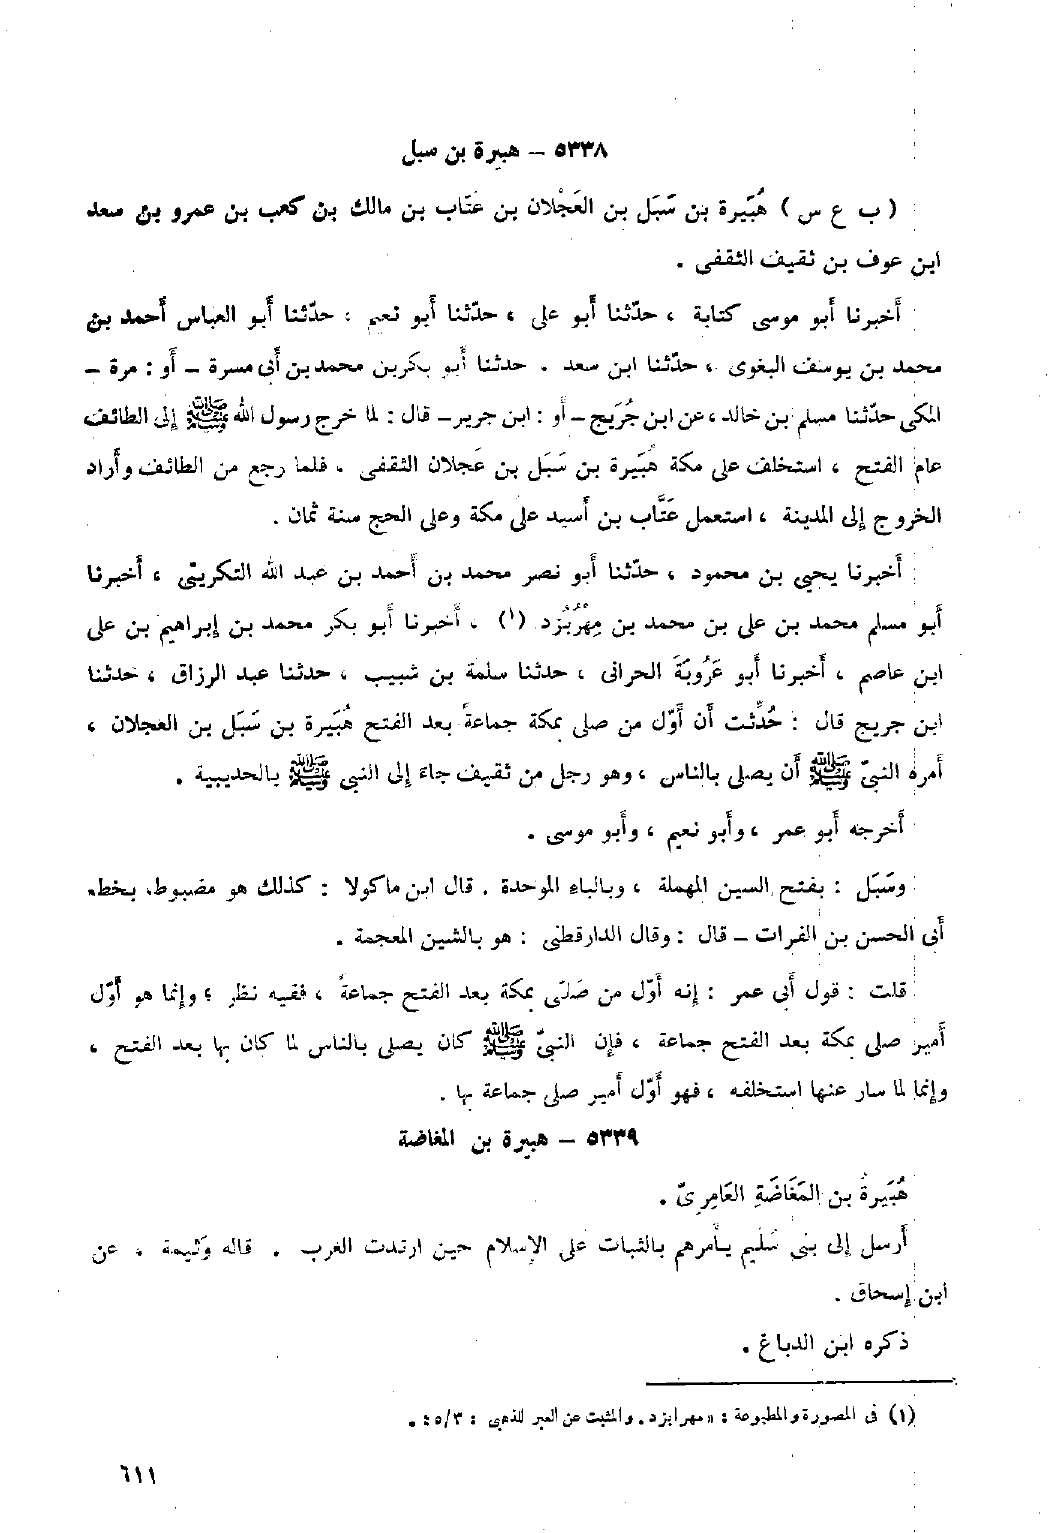 ٥٣٣٨ – هبيرة بن سبل
( ب ع س ) هُبَيرة بن سَبَل بن العَجْلان بن عَتّاب بن مالك بن كعب بن عمرو بن سعد
ابن عوف بن ثقيف الثقفى .
أخبرنا أبو موسى كتابة ، حدّثنا أبو على ، حدّثنا أبو نعيم ، حدّثنا أبو العباس أحمد بن
محمد بن يوسف البغوى ، حدّثنا ابن سعد . حدثنا أبو بكر بن محمد بن أبى مسرة – أو : مرة –
المكى حدّثنا مسلم بن خالد ، عن ابن جُرَيج – أو : ابن جرير – قال : لما خرج رسول الله ﷺ إلى الطائف
عام الفتح ، استخلف على مكة هُبَيرة بن سَبَل بن عَجلان الثقفى . فلما رجع من الطائف وأراد
الخروج إلى المدينة ، استعمل عَتَّاب بن أسيد على مكة وعلى الحج سنة ثمان .
أخبرنا يحيى بن محمود ، حدّثنا أبو نصر محمد بن أحمد بن عبد الله التكريتى ، أخبرنا
أبو مسلم محمد بن على بن محمد بن مِهْرُبُزد (١) ، أخبرنا أبو بكر محمد بن إبراهيم بن على
ابن عاصم ، أخبرنا أبو عَرُوبَةَ الحرانى ، حدثنا سلمة بن شبيب ، حدثنا عبد الرزاق ، حدثنا
ابن جريج قال : حُدِّثت أن أوّل من صلى بمكة جماعةً بعد الفتح هُبَيرة بن سَبَل بن العجلان ،
أمره النبىّ ﷺ أن يصلى بالناس ، وهو رجل من ثقيف جاءَ إلى النبى ﷺ بالحديبية .
أخرجه أبو عمر ، وأبو نعيم ، وأبو موسى .
وسَبَل : بفتح السين المهملة ، وبالباءِ الموحدة . قال ابن ماكولا : كذلك هو مضبوط بخط
أبى الحسن بن الفرات – قال : وقال الدارقطنى : هو بالشين المعجمة .
قلت : قول أبى عمر : إنه أوّل من صَلَّى بمكة بعد الفتح جماعةً ، ففيه نظر ؛ وإنما هو أوّل
أمير صلى بمكة بعد الفتح جماعة ، فإن النبىّ ﷺ كان يصلى بالناس لما كان بها بعد الفتح ،
وإنما لما سار عنها استخلفه ، فهو أوّل أمير صلى جماعة بها .
٥٣٣٩ – هبيرة بن المغاضة
هُبَيرةُ بن المَغَاضَةِ العَامِرىّ .
أرسل إلى بنى سُلَيم يأمرهم بالثبات على الإسلام حين ارتدت العرب . قاله وَثيمة ، عن
ابن إسحاق .
ذكره ابن الدباغ .
(١) فى المصورة والمطبوعة : « مهرايزد . والمثبت عن العبر للذهبى : ٣/
٦١١